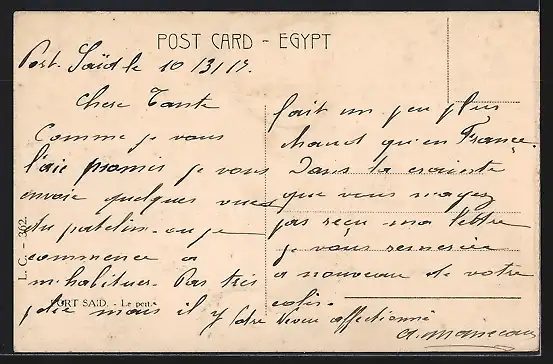 POST CARD - EGYPT
Port. Saïd le 10/3/17.
Chere Tante
Comme je vous
l'aie promis je vous
envoie quelques vues
du patelin. ou je
commence a
m'habituer. Pas très
jolie mais il y
fait un peu plus
chaud qu'en France.
Dans la crainte
que vous n'ayez
pas reçu ma lettre
je vous remercie
a nouveau de votre
colis.
Votre Neveu affectionné
L. C. - 302
PORT SAID. - Le port.